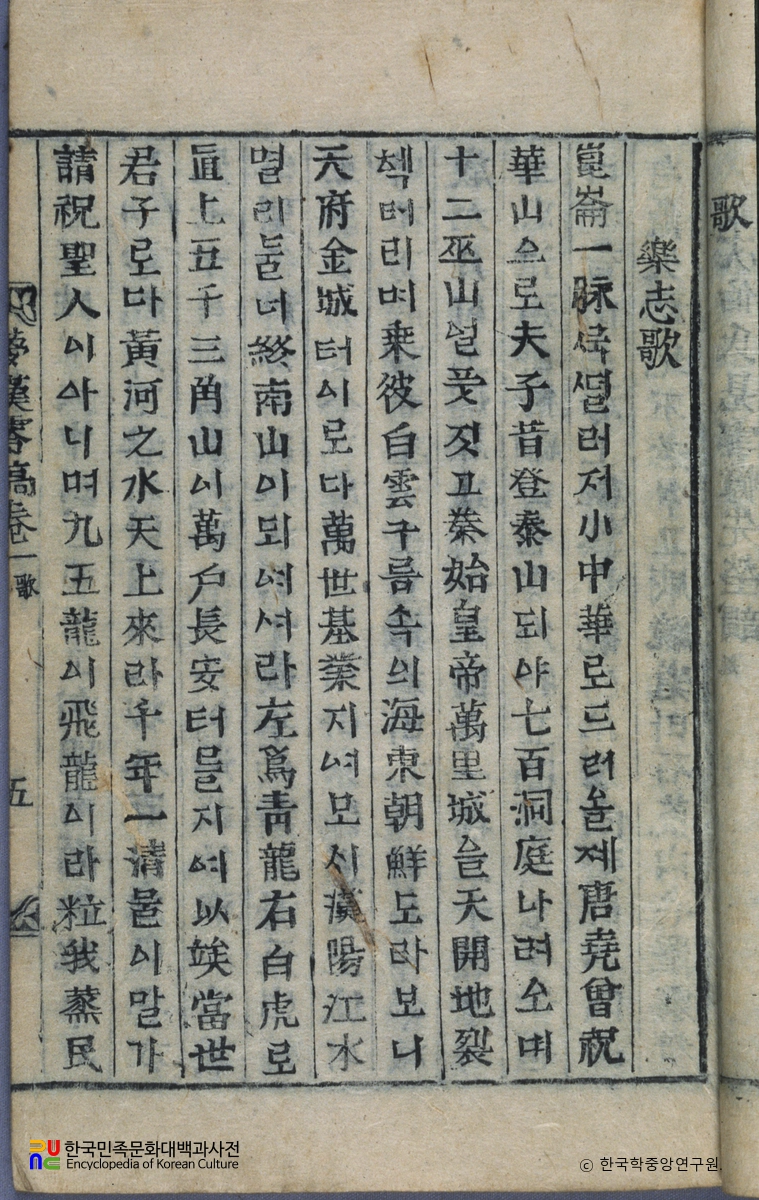 歌
樂志歌
崑崙一脉 써러저小中華로드러올제唐堯曾祝
華山으로夫子昔登泰山되야七百洞庭나려오며
十二巫山 짓고秦始皇帝萬里城을天開地裂
터리며乘彼白雲구름속의海東朝鮮도라보니
天府金城터이로다萬世基業지여모시漢陽江水
멀리둘너終南山이되여셔라左爲靑龍右白虎로
直上五千三角山이萬戶長安터를지여以竢當世
君子로다黃河之水天上來라千年一清물이말가
請祝聖人이아니며九五龍이飛龍이라粒我蒸民
夢漢零稿卷一 歌 五
한국민족문화대백과사전
Encyclopedia of Korean Culture
© 한국학중앙연구원.